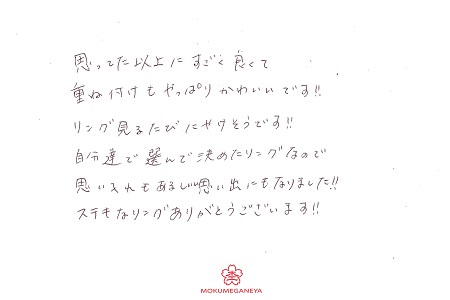 思ってた以上にすごく良くて
重ね付けもやっぱりかわいいです!!
リング見るたびにやけそうです!!
自分達で選んで決めたリングなので
思い入れもあるし思い出にもなりました!!
ステキなリングありがとうございます!!
MOKUMEGANEYA